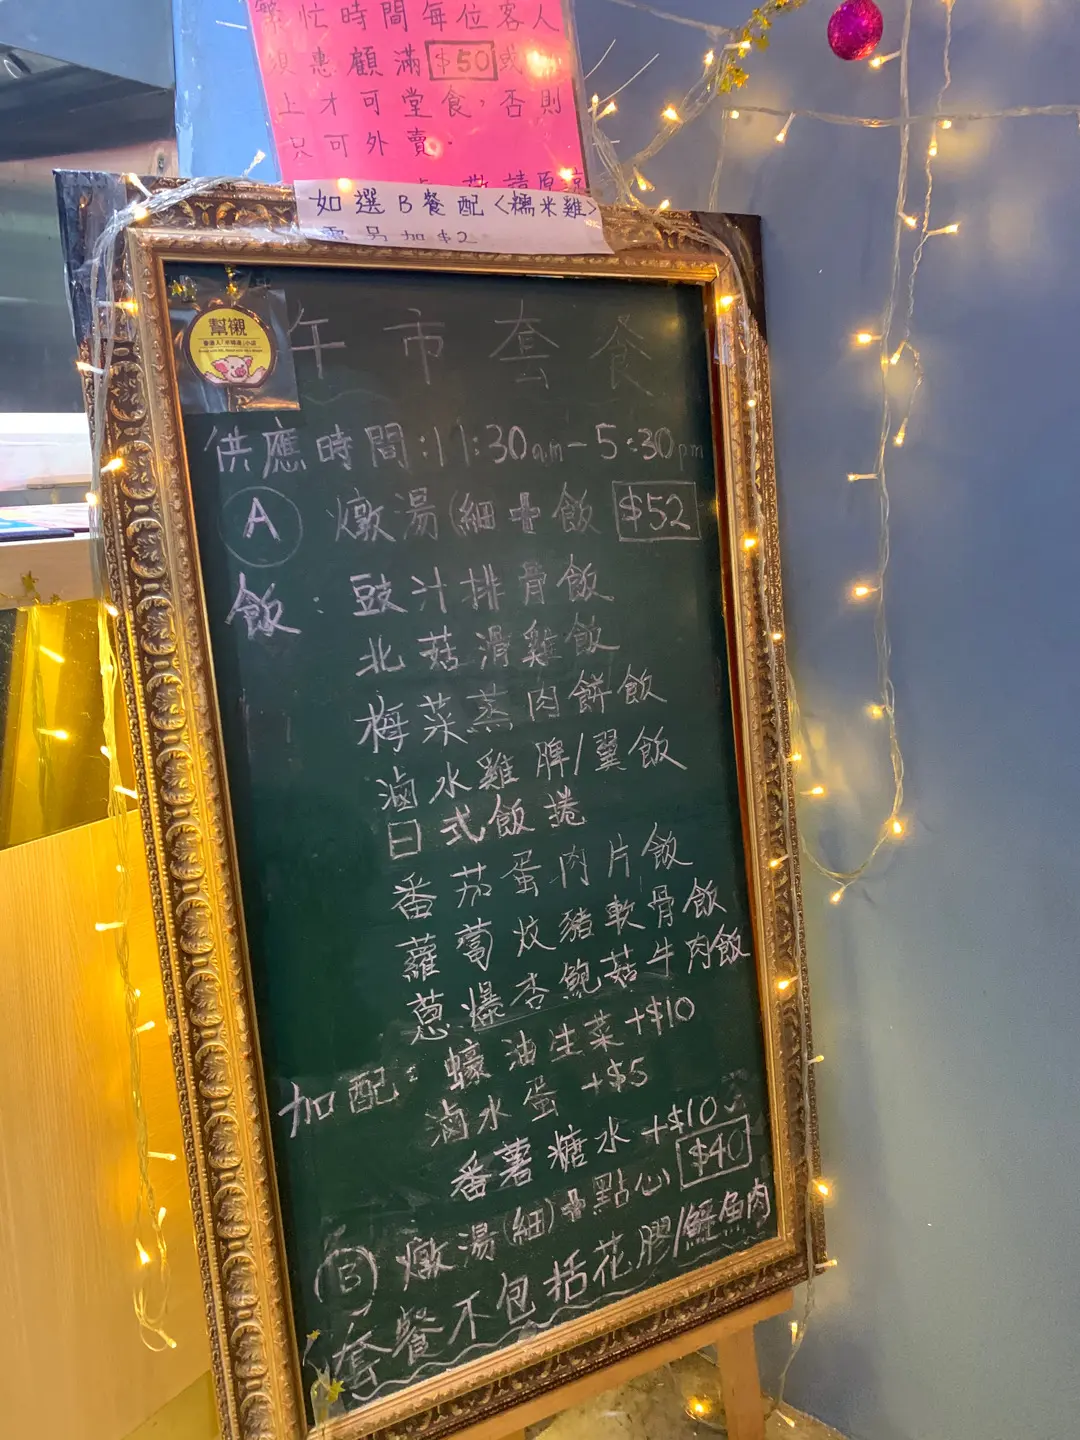 繁忙時間每位客人
須惠顧滿$50或以
上才可堂食，否則
只可外賣。
敬請原諒
如選B餐配<糯米雞>
需另加$2
幫襯
午市套餐
供應時間:11:30am-5:30pm
A 燉湯(細+飯 $52
飯：豉汁排骨飯
北菇滑雞飯
梅菜蒸肉餅飯
滷水雞脾/翼飯
日式飯捲
番茄蛋肉片飯
蘿蔔炆豬軟骨飯
蔥爆杏鮑菇牛肉飯
加配：蠔油生菜+$10
滷水蛋 +$5
番薯糖水+$10
B 燉湯(細)+點心 $40
套餐不包括花膠/鱷魚肉